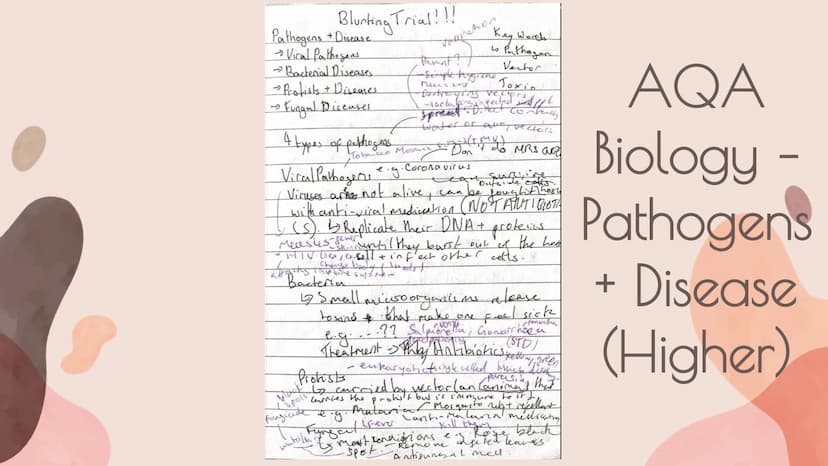 Blurting Trial!!!
Pathogens + Disease
→ Viral Pathogens
→ Bacterial Diseases
→ Protists + Diseases
→ Fungal Diseases
Key Words
↳ Pathogen
Vector
Toxin
vaccination
Prevent?
- Simple hygiene
measures
- Destroying vectors
- Isolating infected ppl
spread - Direct contact,
water or air, vectors
4 types of pathogens
Tobacco Mosaic (TMV)
Don't do MRS GREN
Viral Pathogens e.g. Coronavirus
can survive
outside cells
Viruses are not alive, can be fought
with anti-viral medication (NOT ANTIBIOTIC
(S). ↳ Replicate their DNA + proteins
until they burst out of the
cell + infect other cells.
Measles - fever
skin
- HIV
immune system
Bacteria
↳ Small microorganisms release
toxins that make one feel sick
e.g. ....??
Salmonella, Gonorrhoea
(STD)
Treatment → Antibiotics
yellow, green
- eukaryotic
Protists
↳ carried by vector (an animal that
carries the protist but is immune to it)
e.g. Malaria / Mosquito nets + repellent
↳ fever
anti-malarial medication
kill them
Fungicide
Fungal
↳ most conditions e.g. Rose black
spot - Remove infected leaves
Antifungal med
AQA
Biology -
Pathogens
+ Disease
(Higher)